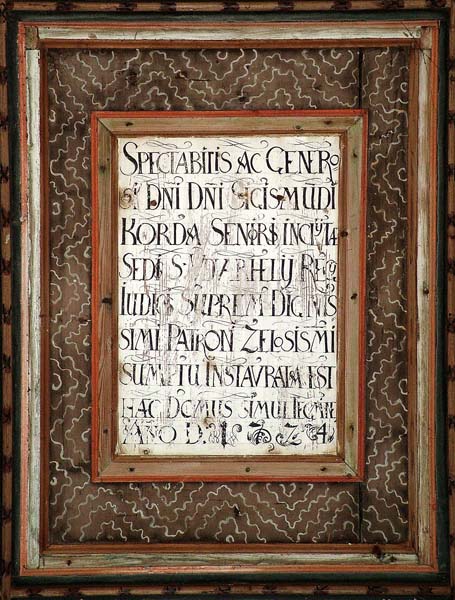 SPECTABITIS AC GENERO
SI DNI DNI GICISMUDI
KORDA SENIORIS INCLYTÆ
SEDIS
IUDICIS SUPREM DIGNIS
SIMI PATRON ZELOSISMI
SUMPTU INSTAVRATA EST
HAC DOMUS SIMUL TEGMINE
AÑO D. 1724